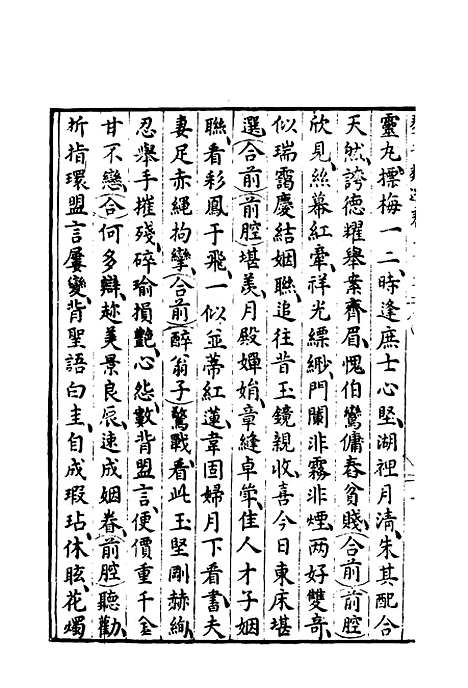 靈九摽梅一二時逢庶士心堅湖裡月清朱其配合
天然誇德耀舉案齊眉愧伯鸞傭舂貧賤合前前腔
欣見絲幕紅牽祥光縹緲門闌非霧非煙两好雙竒
似瑞靄慶結姻聯追往昔玉鏡親收喜今日東床堪
選合前前腔堪羡月殿嬋娟章縫卓犖佳人才子姻
聯看彩鳳于飛一似並蒂紅蓮韋固婦月下看書夫
妻足赤繩拘攣合前醉翁子驚戰看此玉堅剛赫絢
忍舉手摧殘碎瑜損艶心怨數背盟言便價重千金
甘不戀合何多辯趂美景良辰速成姻眷前腔聽勸
折指環盟言屢變背聖語白圭自成瑕玷休眩花燭